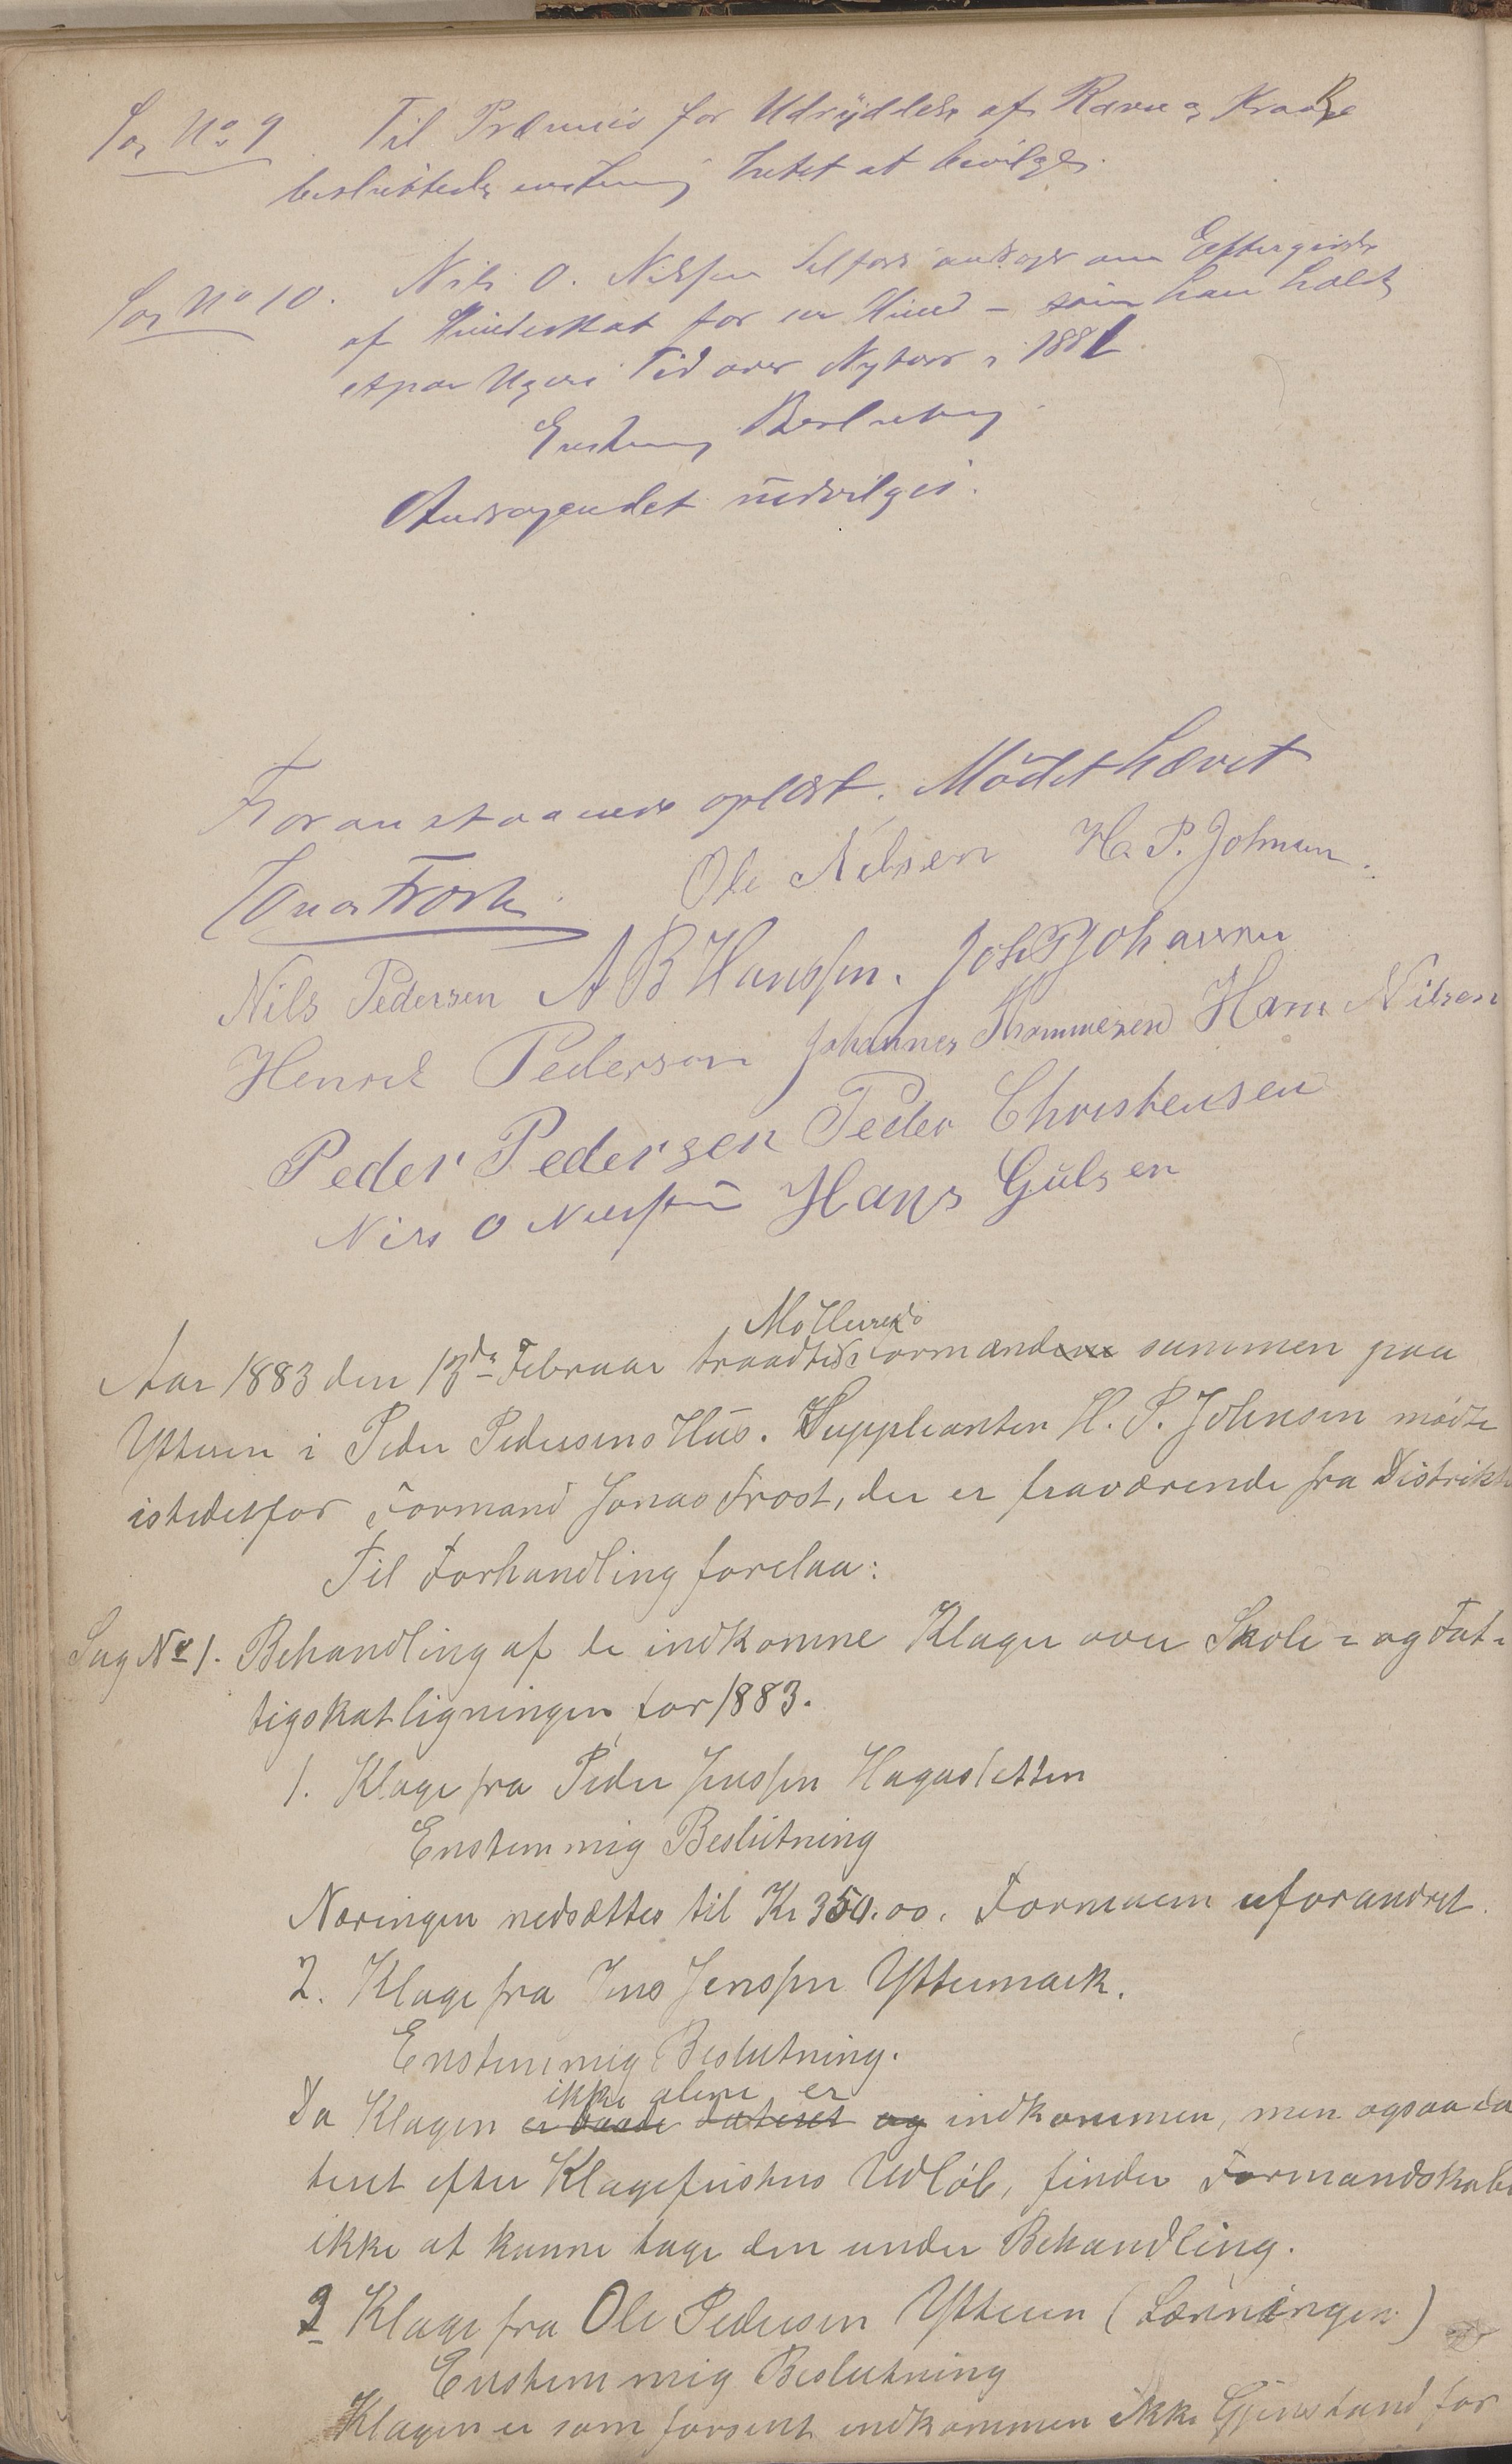 Sag No 9 Til Præmie for Udryddelse af Ræve og Kraake
besluttede enstemmig Intet at bevilges.
Sag No 10. Nils O. Nilssen Selfors andrager om Eftergivelse
af Hundeskat for en Hund – som han holdt
et par Ugers Tid over Nytaar i 1881
Enstemmig Beslutning
Andragendet indvilges.
Foranstaaende oplæst. Mödet hævet
Jonas Frost. Ole Nilsen H. P. Johnsen.
Nils Pedersen A B Hanssen. Joh P Johansen
Henrik Pedersen Johannes Thommesen Hans Nilsen
Peder Pedersen Peder Christensen
Nils O Nilssen Hans Gulsen
Aar 1883 den 13de Februar traadte Mo Herreds Formænd sammen paa
Ytteren i Peder Pedersens Hus. Suppleanten H. P. Johnsen mödte
istedetfor Formand Jonas Frost, der er fraværende fra Distrikt
Til Forhandling forelaa:
Sag No 1. Behandling af de indkomne Klager over Skole- og Fat-
tigskatligningen for 1883.
1. Klage fra Peder Jenssen Hagasletten
Enstemmig Beslutning
Næringen nedsættes til Kr 350.00. Formuen uforandret.
2. Klage fra Jens Jenssen Yttermark.
Enstemmig Beslutning.
Da Klagen er baade dateret og ikke alene er indkommen, men ogsaa da
teret efter Klagefristens Udlöb, finder Formandskabet
ikke at kunne tage den under Behandling.
3 Klage fra Ole Pedersen Ytteren
Enstemmig Beslutning
Klagen er som forsent indkommen ikke Gjenstand for